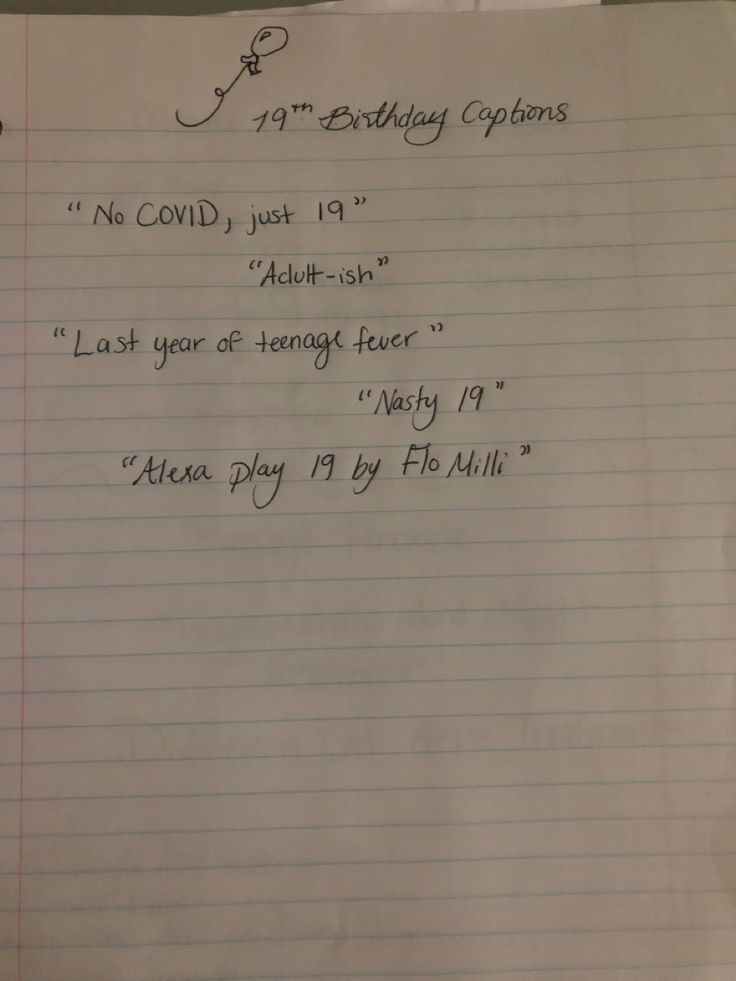 19th Birthday Captions
“No COVID, just 19”
“Adult-ish”
“Last year of teenage fever”
“Nasty 19”
“Alexa play 19 by Flo Milli”